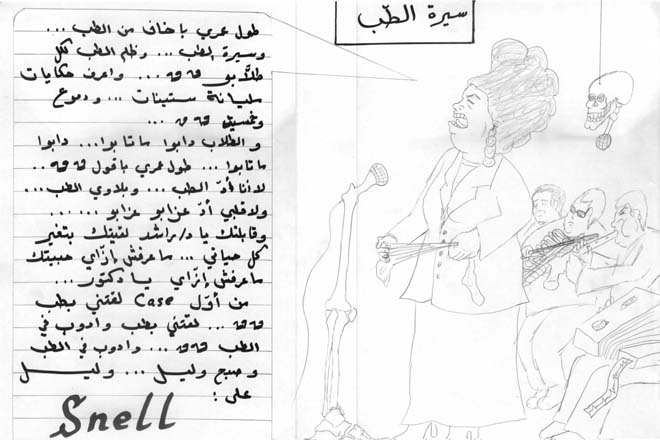 سيرة الطب
طول عمري باخاف من الطب ...
وسيرة الطب ... وظلم الطب لكل
طلابو ... واعرف حكايات
مليانة ستينات ... ودموع
والطلاب دابوا ماتابوا ... دابوا
ماتابوا ... طول عمري باقول
لا أنا أد الطب ... وبلاوي الطب ...
ولا قلبي أد عزابو عزابو ... ...
وقابلتك يا د/راشد لقيتك بتغير
كل حياتي ... ماعرفش إزاي حبيتك
ماعرفش إزاي يا دكتور ...
من أول Case لقتني بطب
... لقتني بطب وادوب في
الطب ... وادوب في الطب
وصبح وليل ... وليل
على :
Snell